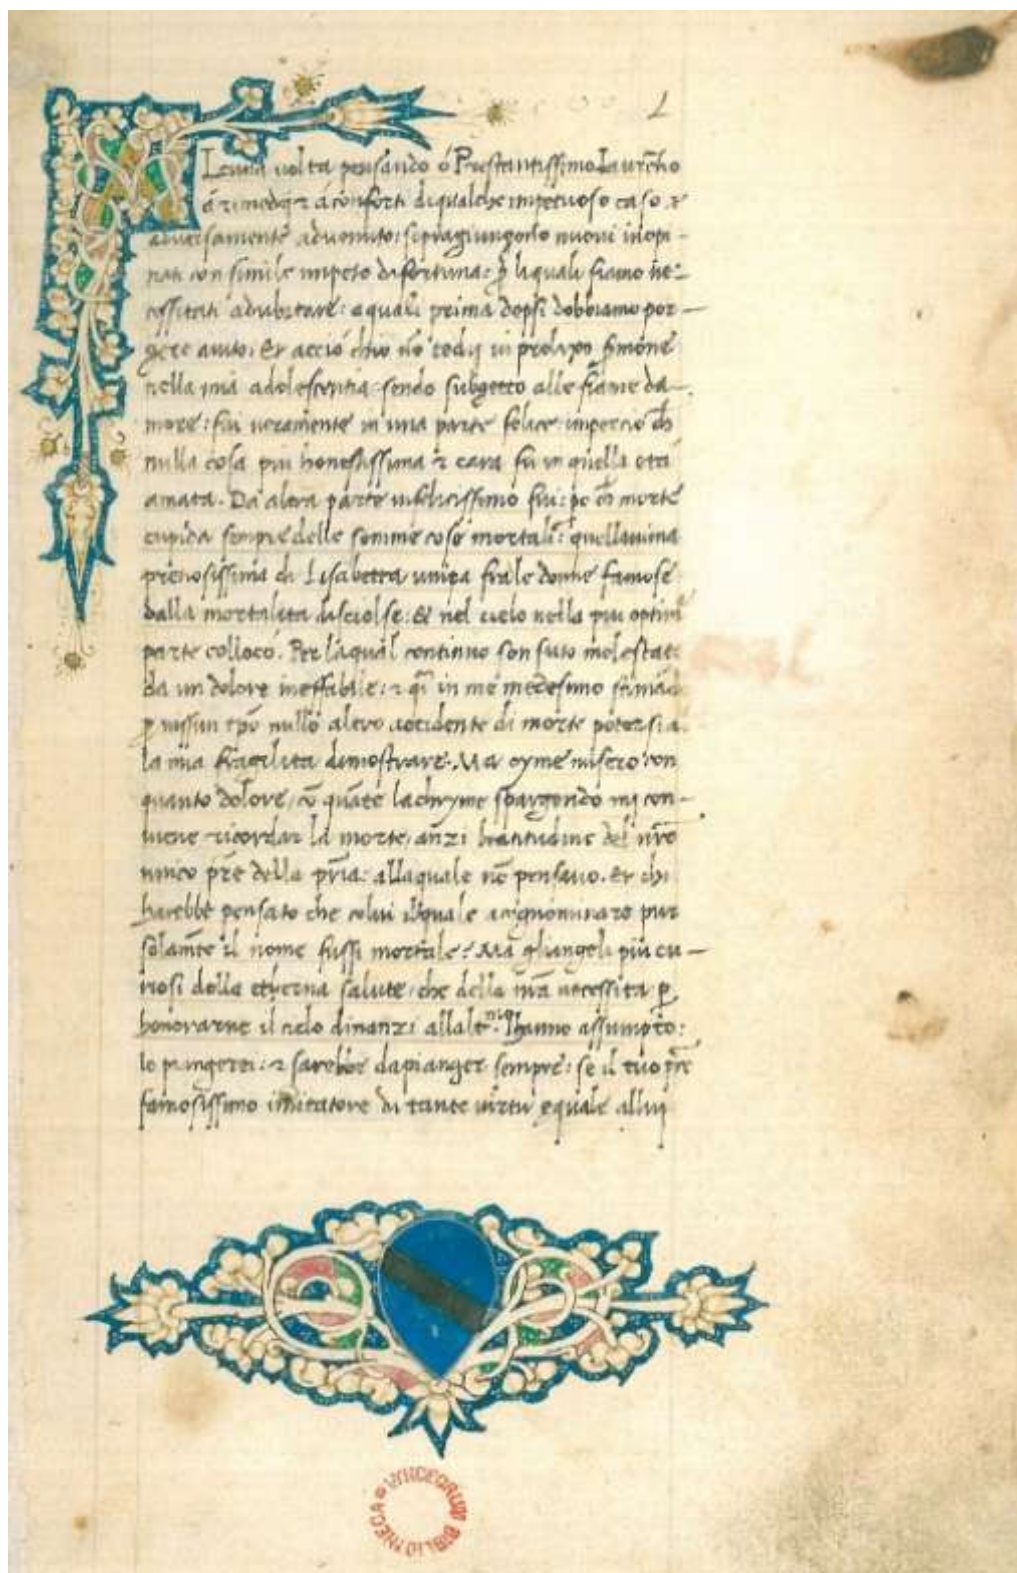 1
ALcuna volta pensando ó Prestantissimo Laurẽtio
á rimedij ⁊ á conforti di qualche impetuoso caso
adversamente advenuto: sopragiungono nuovi inopi-
nati con simile impeto di fortuna: liquali siamo ne-
cessitati adubitare: aquali prima depsi dobbiamo por-
gere aiuto. Et accio chio nõ tedij in prolixo sermone
nella mia adolescentia: sendo subgetto alle fiãme da-
more: fui veramente in una parte felice: impercio ch
nulla cosa piu honestissima ⁊ cara fu in quella eta
amata. Da altra parte infelicissimo fui: morte
cupida sempre delle somme cose mortali: quellanima
pretiosissima di Lisabetta unica frale donne famose
dalla mortalita disciolse: & nel cielo nella piu optima
parte collocó. Per laqual continuo son suto molestat
da un dolore ineffabile: ⁊ in me medesimo
nissun tpõ nullo altro accidente di morte potersi a
la mia fragilita dimostrare. Ma oyme misero con
quanto dolore, cõ quãte lachryme spargendo mi con-
viene ricordar la morte, anzi beatitudine del nr̃o
unico pr̃e della pr̃ia: allaquale nõ pensavo. Et chi
harebbe pensato che colui ilquale pur
solamẽte il nome fussi mortale? Ma gliangeli più cu-
riosi della etherna salute, che della nr̃a necessita ꝑ
honorarne il cielo dinanzi hanno assumpto:
lo piangerei: ⁊ sarebbe dapianger sempre: se il tuo pr̃e
famosissimo imitatore di tante virtu equale allui
BIBLIOTHECA